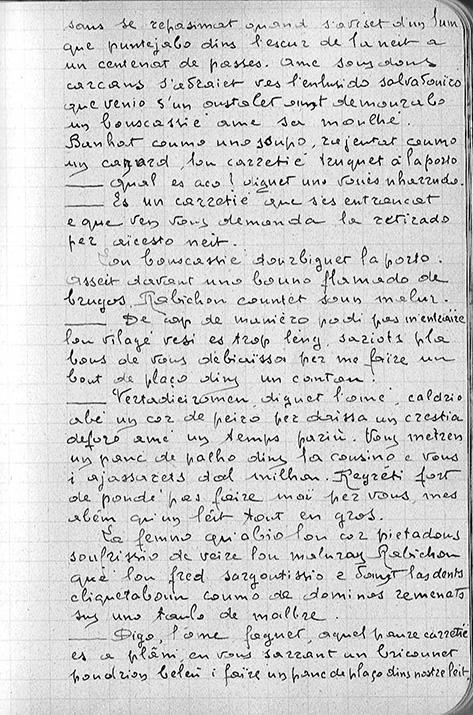 sans se repasimat quand s'aviset d'un lum
que puntejabo dins l'escur de la neit a
un centenat de passes. Ame sous dous
carcans s'atraiet ves l'enlusido salvatouiro
que venio d'un oustalet ount demourabo
un bouscassié ame sa moulhé.
Banhat coumo uno soupo, rajentat coumo
un canard, lou carretié truquet à la porto
— Qual es aco! diguet uno vouès
— Es un carretié que s'es entrancat
e que ven vous demanda la retirado
per aicesto neit.
Lou bouscassié dourbiguet la porto.
Asseit davant uno bouno flamado de
brugos, Rabichon countét soun malur.
— De cap de manièro podi pas m'entraire
lou vilage vesi es trop leng, sariots pla
bous de vous debiaissa per me faire un
bout de plaço dins un cantou!
— Vertadieiromen, diguet l'ome, caldrio
abé un cor de peiro per daissa un crestia
deforo amé un temps pariu. Vous metren
un panc de palho dins la cousino e vous
i ajassarets dal milhou. Regréti fort
de poudé pas faire mai per vous, mes
abém qu'un leit tout en gros.
La femno qu'abio lou cor pietadous
soufrissio de veire lou maluraz Rabichon
que lou fred sargoutissio e dount las dents
cliquetaboun coumo de dominos remenats
sus uno taulo de malbre.
— Digo, l'ome, faguet, aquel paure carretié
es a plâni, en nous sarrant un bricounet
poudrion beleu i faire un panc de plaço dins nostre leit,